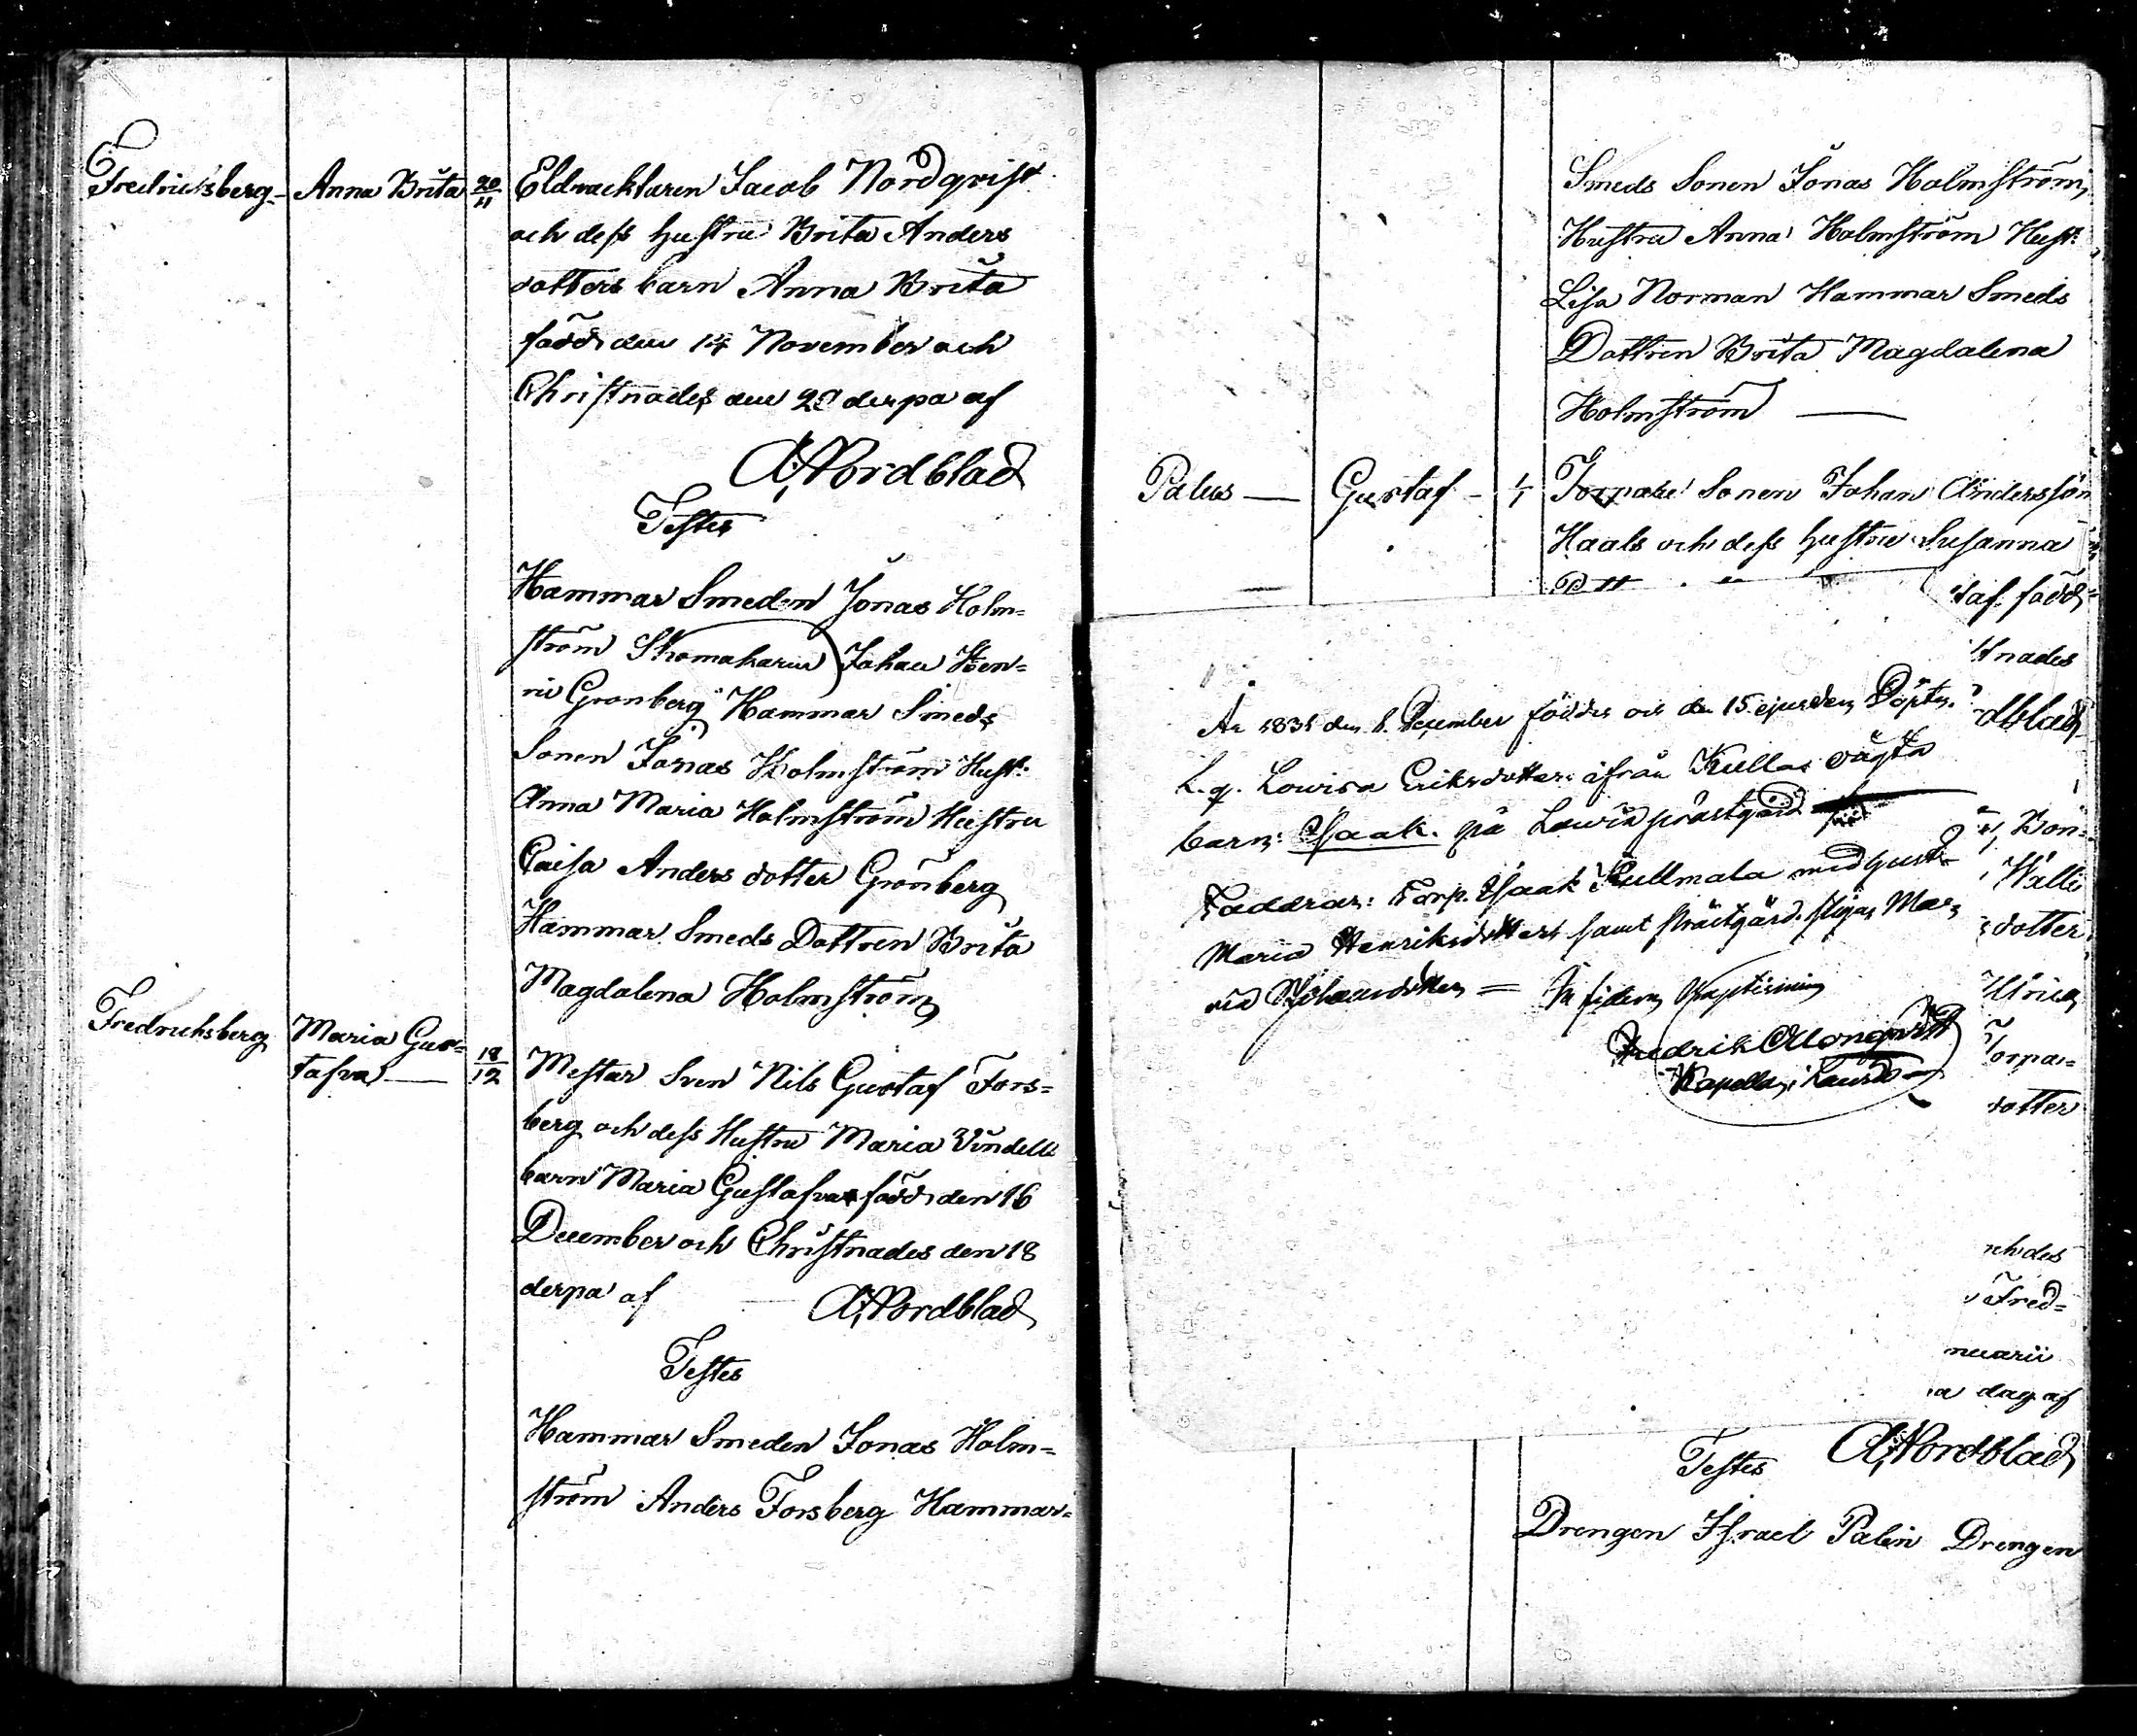 Fredricksberg- Anna Brita 20/11 Eldvacktaren Jacob Nordqvist
och dess hustru Brita Anders
dotters barn Anna Brita
född den 14 November och
Christnades den 20 derpa af
A, Nordblad
Testes
Hammar Smeden Jonas Holm=
ström Skomakaren Johan Hen=
ric Gronberg Hammar Smeds
Sonen Jonas Holmström Hust:
Anna Maria Holmström Hustru
Caisa Anders dotter Grönberg
Hammar Smeds Dottren Brita
Magdalena Holmström
Fredricksberg Maria Gus=
tafva — 18/12 Mestar Sven Nils Gustaf Fors=
berg och dess Hustru Maria Vindells
barn Maria Gustafva född den 16
December och Christnades den 18
derpa af A, Nordblad
Testes
Hammar Smeden Jonas Holm=
ström Anders Forsberg Hammar=
Smeds Sonen Jonas Holmström,
Hustru Anna Holmström Hust:
Lisa Norman Hammar Smeds
Dottren Brita Magdalena
Holmström —
Palus — Gustaf - 1/1 Torpare Sonen Johan Andersson
Haals och dess hustru Susanna
taf född
tnades
dblad
År 1831 den 8. December föddes och den 15 ejusdem Döptes
L. q. Lowisa Eriksdotters ifrån Kulla oägta
barn: Isaak. på Lawia prästgård
Faddrar: Torp. Isaak Kullmala med hustr
Maria Henriksdotter samt Prästgård. pigan Ma=
ria Johansdotter = In fidem
Fredrik Mongvist
Kapellan i Lawia
Bon=
Walls
dotter
Ulrica
Torpa=
dotter
ch des
Fred=
nuarii
a dag af
A, Nordblad
Testes
Drengen Israel Palin Drengen